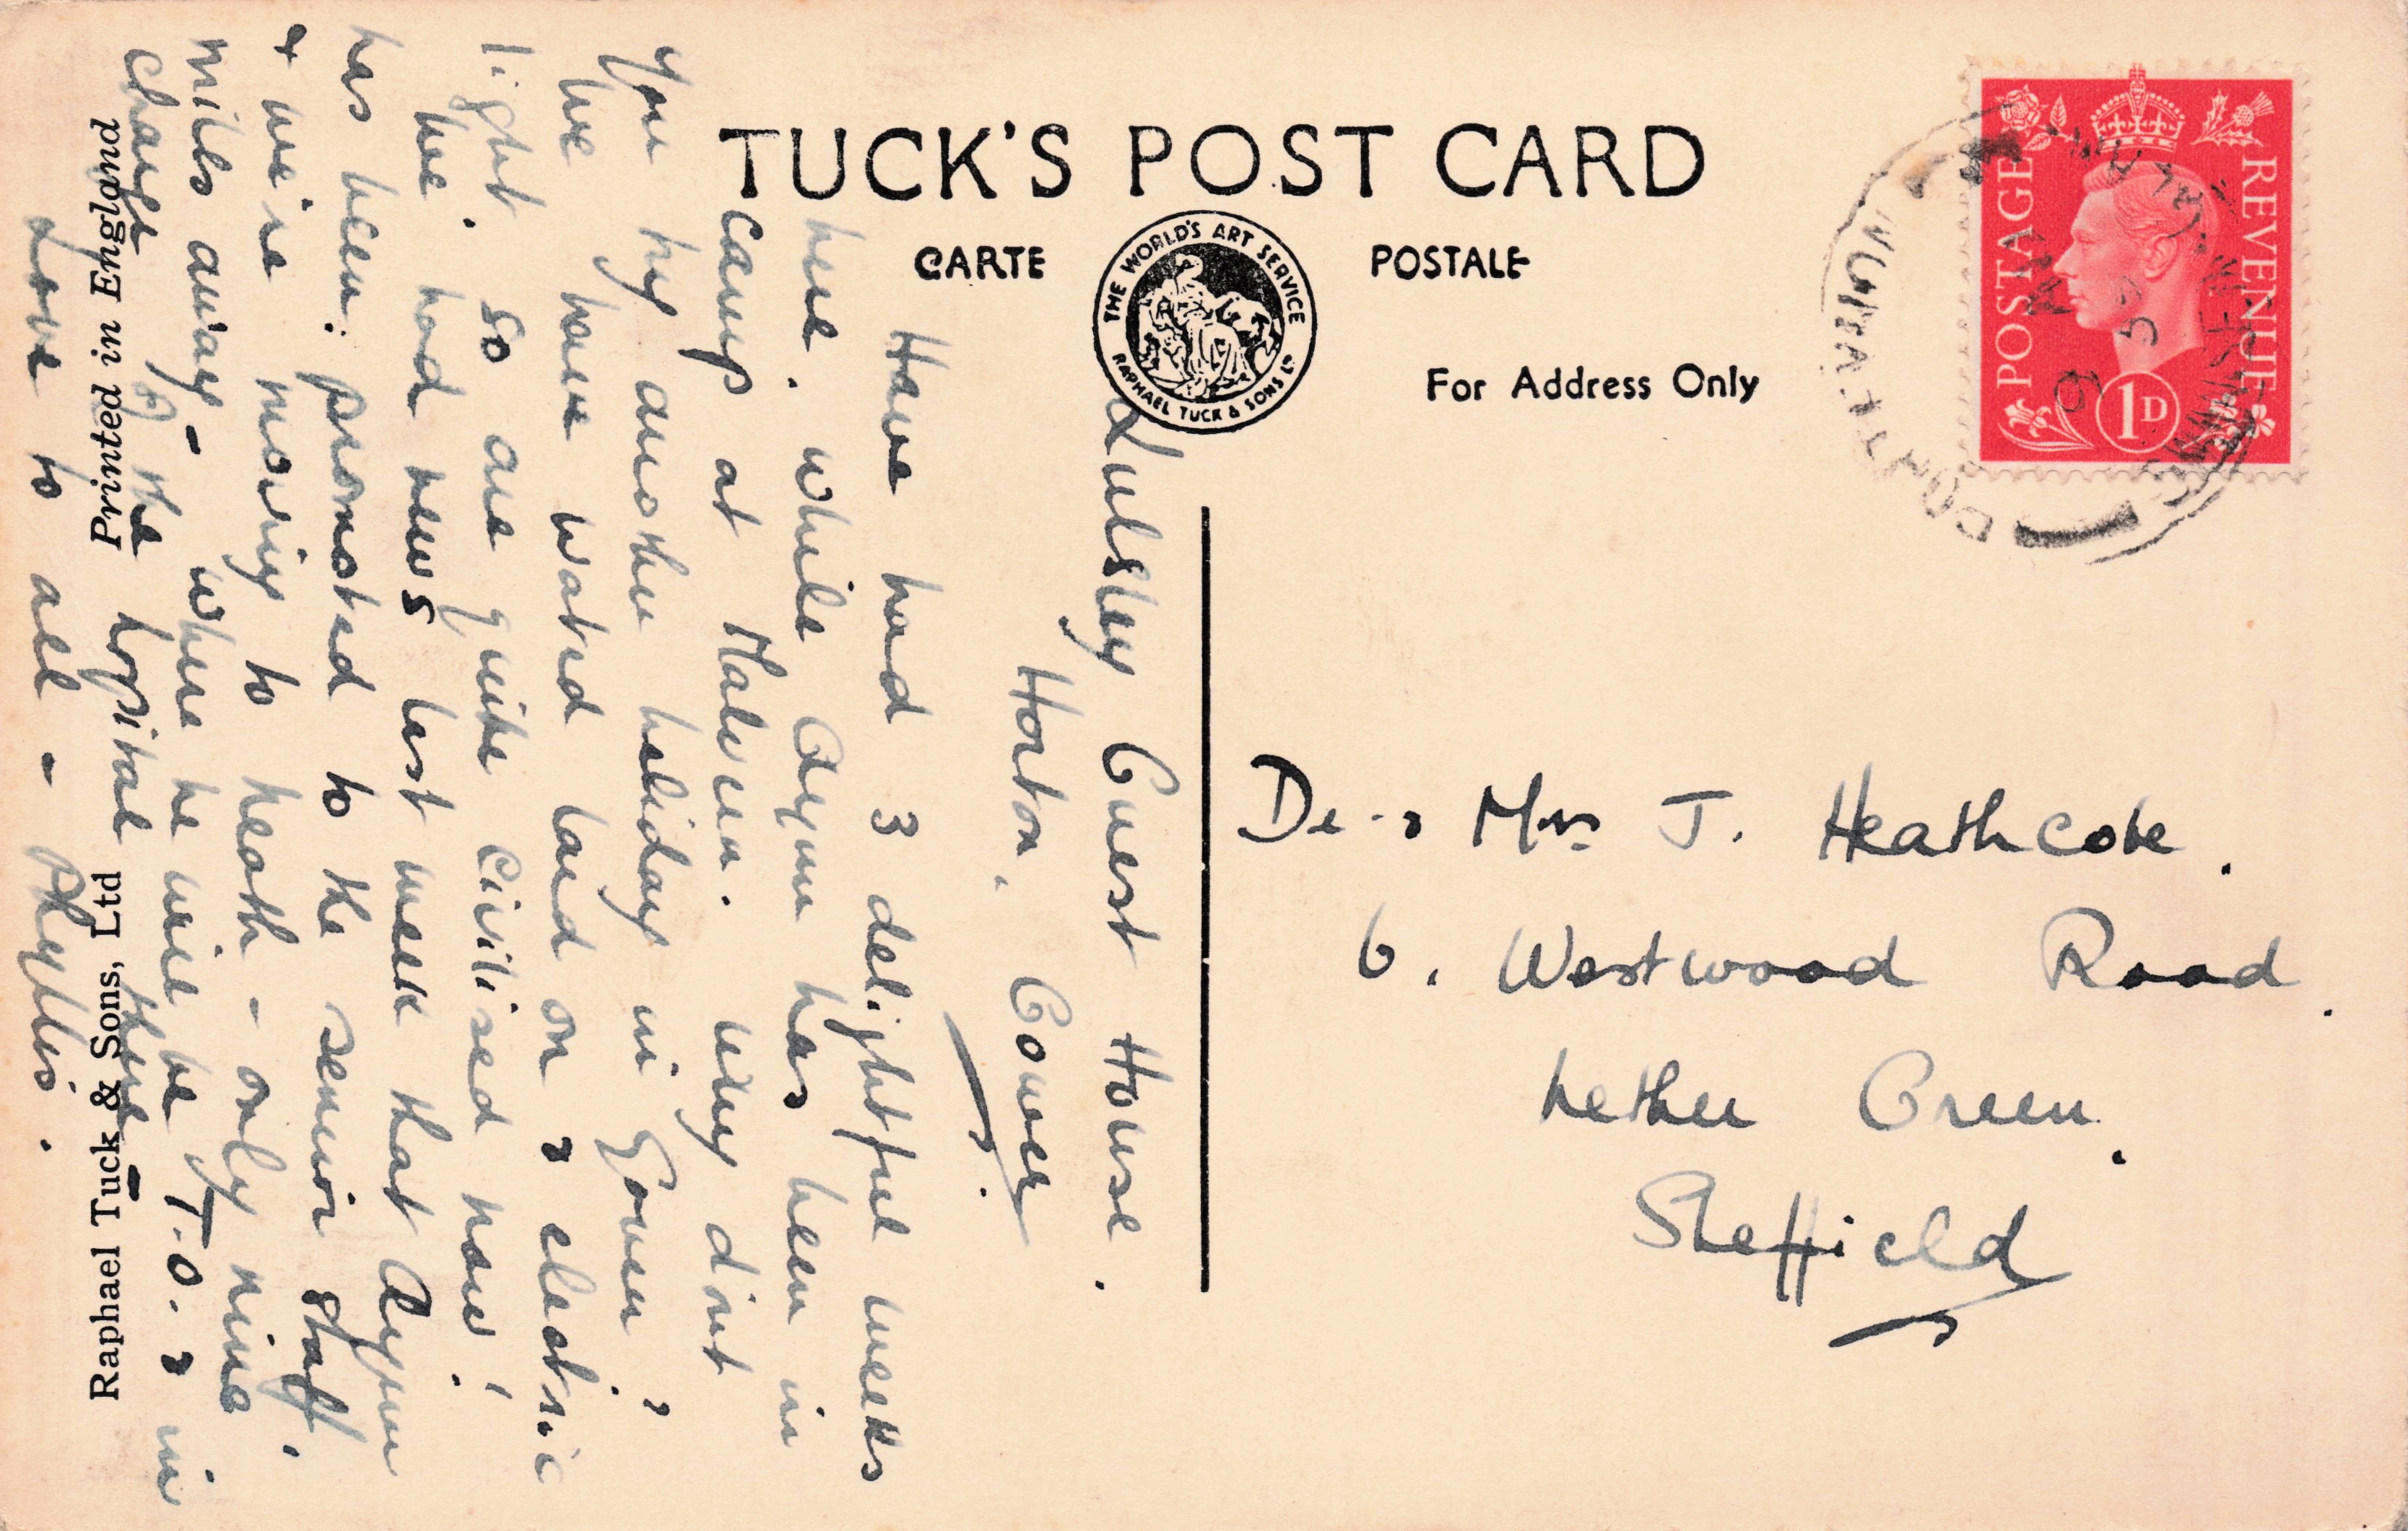 TUCK'S POST CARD
CARTE POSTALE
THE WORLD'S ART SERVICE
RAPHAEL TUCK & SONS LD
For Address Only
POSTAGE
REVENUE
1D
Dr & Mrs J. Heathcote.
6. Westwood Road.
Nether Green.
Sheffield
Guest House.
Horton. Gower
Have had 3 delightful weeks
here. while has been in
camp at Malvern. Why dont
you try another holiday in Gower?
We have water laid on & electric
light. So are quite civilised now!
We had news last week that
has been promoted to the senior staff.
& we're moving to Neath - only nine
miles away - where he will be T.O. & in
charge of the hospital there -
Love to all - Phyllis.
Printed in England
Raphael Tuck & Sons, Ltd